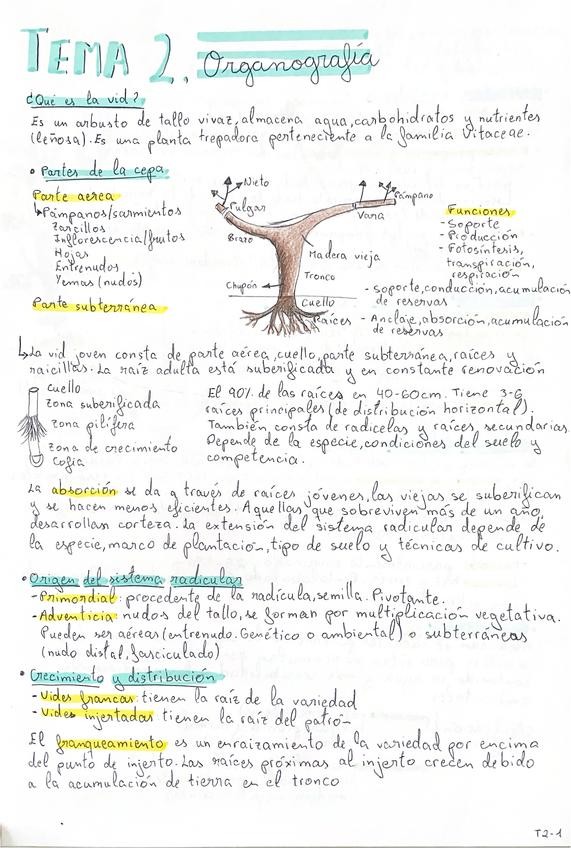 TEMA 2. Organografía
¿Qué es la vid?
Es un arbusto de tallo vivaz, almacena agua, carbohidratos y nutrientes
(leñosa). Es una planta trepadora perteneciente a la familia Vitaceae.
• Partes de la cepa
Parte aerea
↳ Pámpanos/sarmientos
Zarcillos
Inflorescencia/frutos
Hojas
Entrenudos
Yemas (nudos)
Parte subterránea
Nieto
Pulgar
Brazo
Pámpano
Vara
Madera vieja
Tronco
Chupón
Cuello
Raíces
Funciones
- Soporte
- Producción
- Fotosíntesis,
transpiración,
respiración
- Soporte, conducción, acumulación
de reservas
- Anclaje, absorción, acumulación
de reservas
↳ La vid joven consta de parte aérea, cuello, parte subterránea, raíces y
raicillas. La raíz adulta está suberificada y en constante renovación
Cuello
Zona suberificada
Zona pilífera
Zona de crecimiento
Cofia
El 90% de las raíces en 40-60cm. Tiene 3-6
raíces principales (de distribución horizontal).
También consta de radicelas y raíces, secundarias.
Depende de la especie, condiciones del suelo y
competencia.
La absorción se da a través de raíces jóvenes, las viejas se suberifican
y se hacen menos eficientes. Aquellas que sobreviven más de un año,
desarrollan corteza. La extensión del sistema radicular depende de
la especie, marco de plantación, tipo de suelo y técnicas de cultivo.
• Origen del sistema radicular
- Primordial: procedente de la radícula, semilla. Pivotante.
- Adventicia: nudos del tallo, se forman por multiplicación vegetativa.
Pueden ser aéreas (entrenudo. Genético o ambiental) o subterráneas
(nudo distal, fasciculado)
• Crecimiento y distribución
- Vides francas: tienen la raíz de la variedad
- Vides injertadas: tienen la raíz del patrón
El franqueamiento es un enraizamiento de la variedad por encima
del punto de injerto. Las raíces próximas al injerto crecen debido
a la acumulación de tierra en el tronco
T2-1